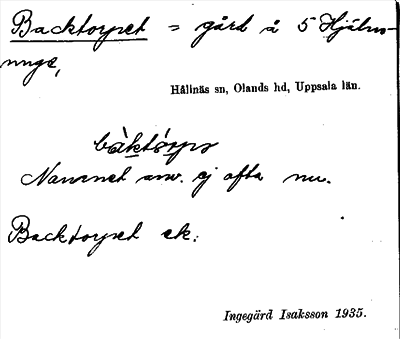 Backtorpet = gård å 5 Hjälm-
unge,
Hållnäs sn, Olands hd, Uppsala län.
bàktórps
Namnet anv. ej ofta nu.
Backtorpet ek.
Ingegärd Isaksson 1935.